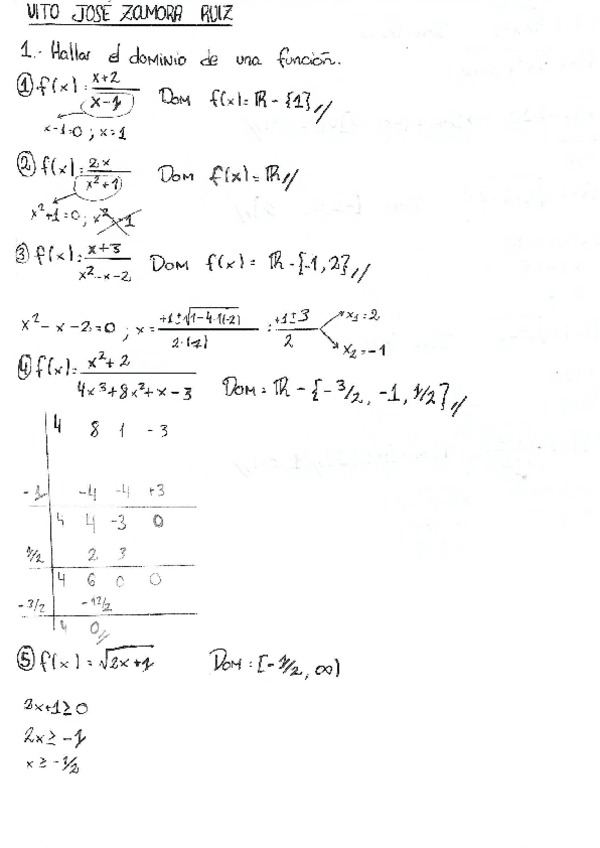 VITO JOSÉ ZAMORA RUIZ
1.- Hallar el dominio de una función.
① f(x) = (x+2)/(x-1) Dom f(x) = ℝ - {1}//
x-1=0 ; x=1
② f(x) = 2x/(x²+1) Dom f(x) = ℝ//
x²+1=0 ; x²=-1
③ f(x) = (x+3)/(x²-x-2) Dom f(x) = ℝ - {-1, 2}//
x²-x-2=0 ; x = (+1±√(1-4·1(-2)))/(2·(1)) = (+1±3)/2 x₁=2
x₂=-1
④ f(x) = (x²+2)/(4x³+8x²+x-3) Dom = ℝ - {-3/2, -1, 1/2}//
4 8 1 -3
-1 -4 -4 +3
4 4 -3 0
1/2 2 3
4 6 0 0
-3/2 -12/2
4 0//
⑤ f(x) = √(2x+1) Dom: [-1/2, ∞)
2x+1≥0
2x≥-1
x≥-1/2